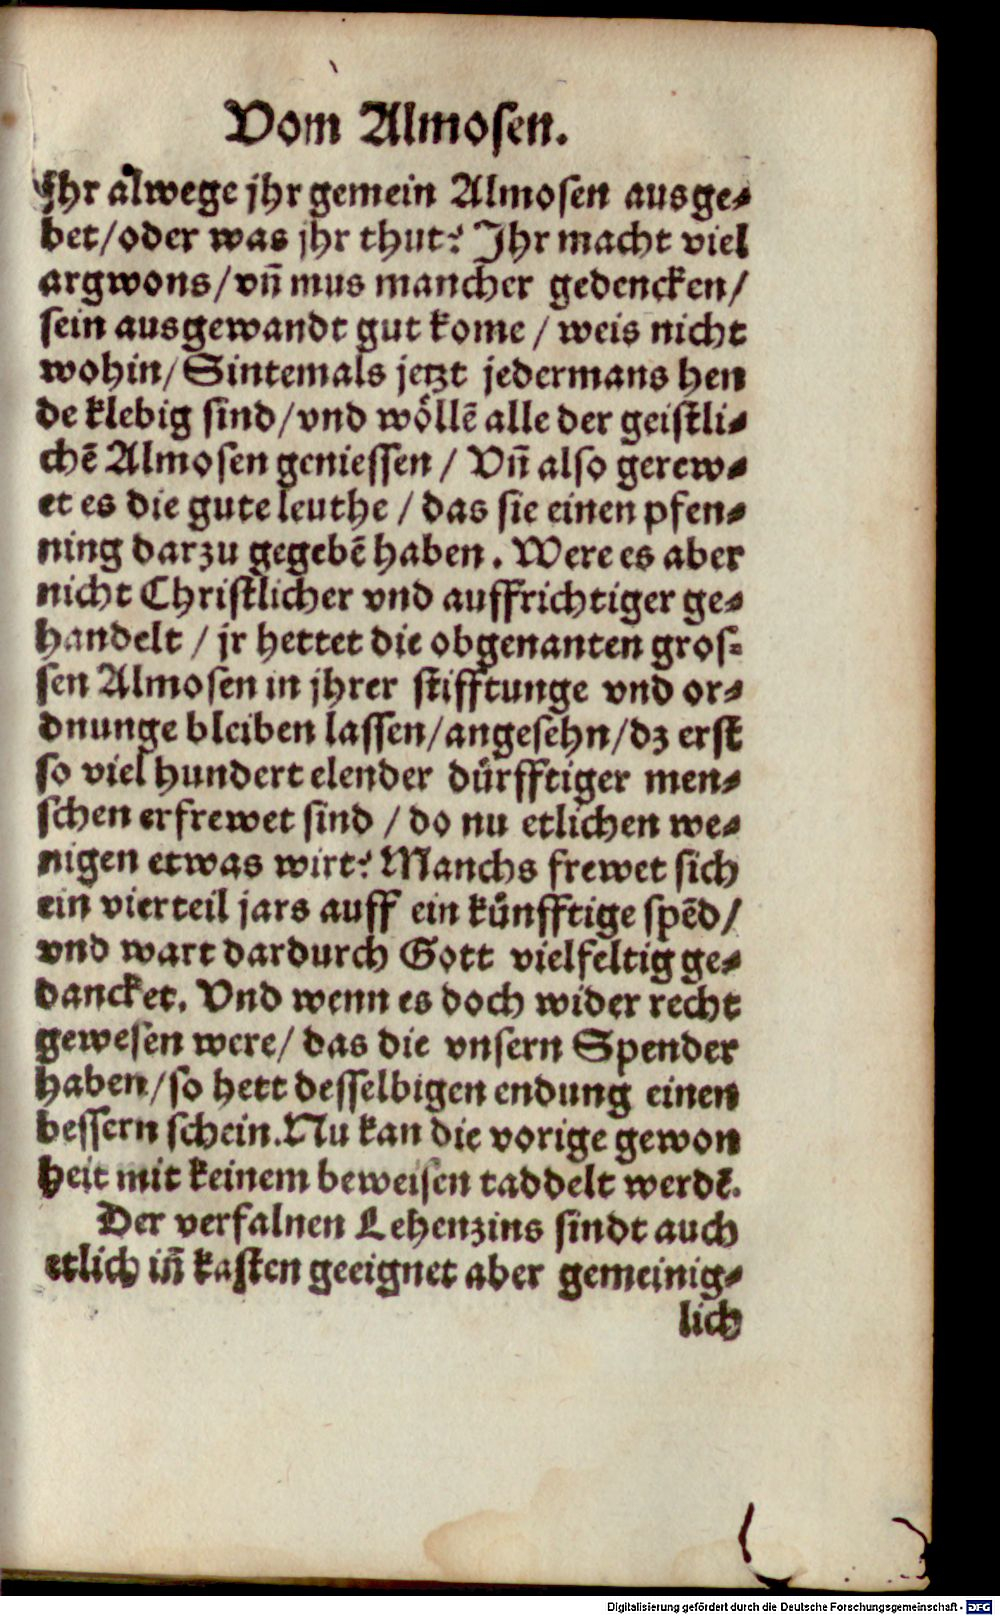 Vom Almosen.
Ihr alwege jhr gemein Almosen ausge⸗
bet/oder was jhr thut? Ihr macht viel
argwons/vn̄ mus mancher gedencken/
sein ausgewandt gut kome / weis nicht
wohin/Sintemals jetzt jedermans hen
de klebig sind/vnd wöllē alle der geistli⸗
chē Almosen geniessen / Vn̄ also gerew⸗
et es die gute leuthe / das sie einen pfen⸗
ning darzu gegebē haben. Were es aber
nicht Christlicher vnd auffrichtiger ge⸗
handelt / jr hettet die obgenanten gros⸗
sen Almosen in jhrer stifftunge vnd or⸗
dnunge bleiben lassen/angesehn/dz erst
so viel hundert elender dürfftiger men⸗
schen erfrewet sind / do nu etlichen we⸗
nigen etwas wirt? Manchs frewet sich
ein vierteil jars auff ein künfftige spēd/
vnd wart dardurch Gott vielfeltig ge⸗
dancket. Vnd wenn es doch wider recht
gewesen were/ das die vnsern Spender
haben/so hett desselbigen endung einen
bessern schein.Nu kan die vorige gewon
heit mit keinem beweisen taddelt werdē.
Der verfalnen Lehenzins sindt auch
etlich in̄ kasten geeignet aber gemeinig⸗
lich
Digitalisierung gefördert durch die Deutsche Forschungsgemeinschaft - DFG